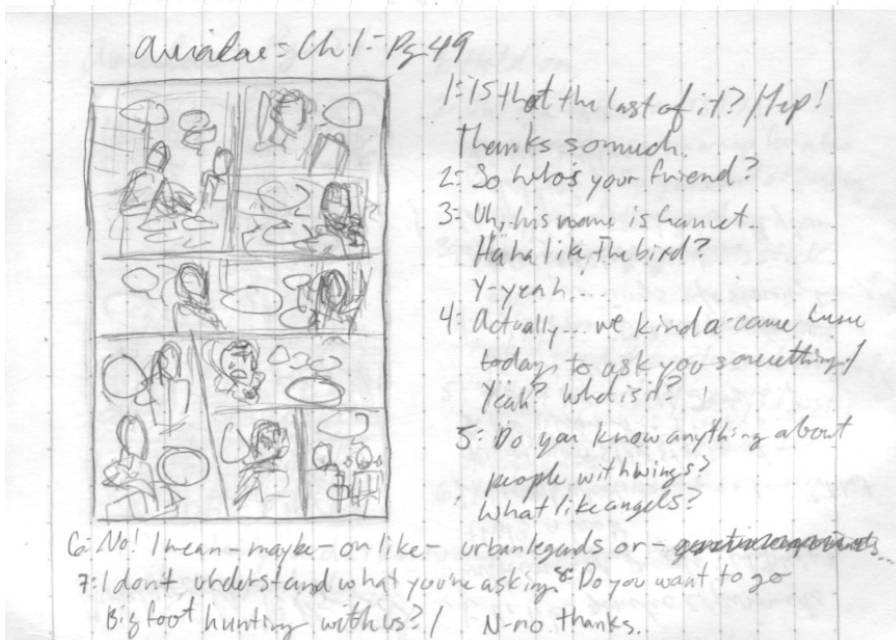 Aviadae - Ch 1 - Pg 49
1: Is that the last of it? / Yep!
Thanks so much.
2: So who's your friend?
3: Uh, his name is
Haha like the bird?
Y-yeah...
4: Actually... we kinda came here
today to ask you something. /
Yeah? What is it?
5: Do you know anything about
people with wings?
What like angels?
6: No! I mean - maybe - or like - urban legends or -
7: I don't understand what you're asking. 8: Do you want to go
Bigfoot hunting with us? / N-no thanks.